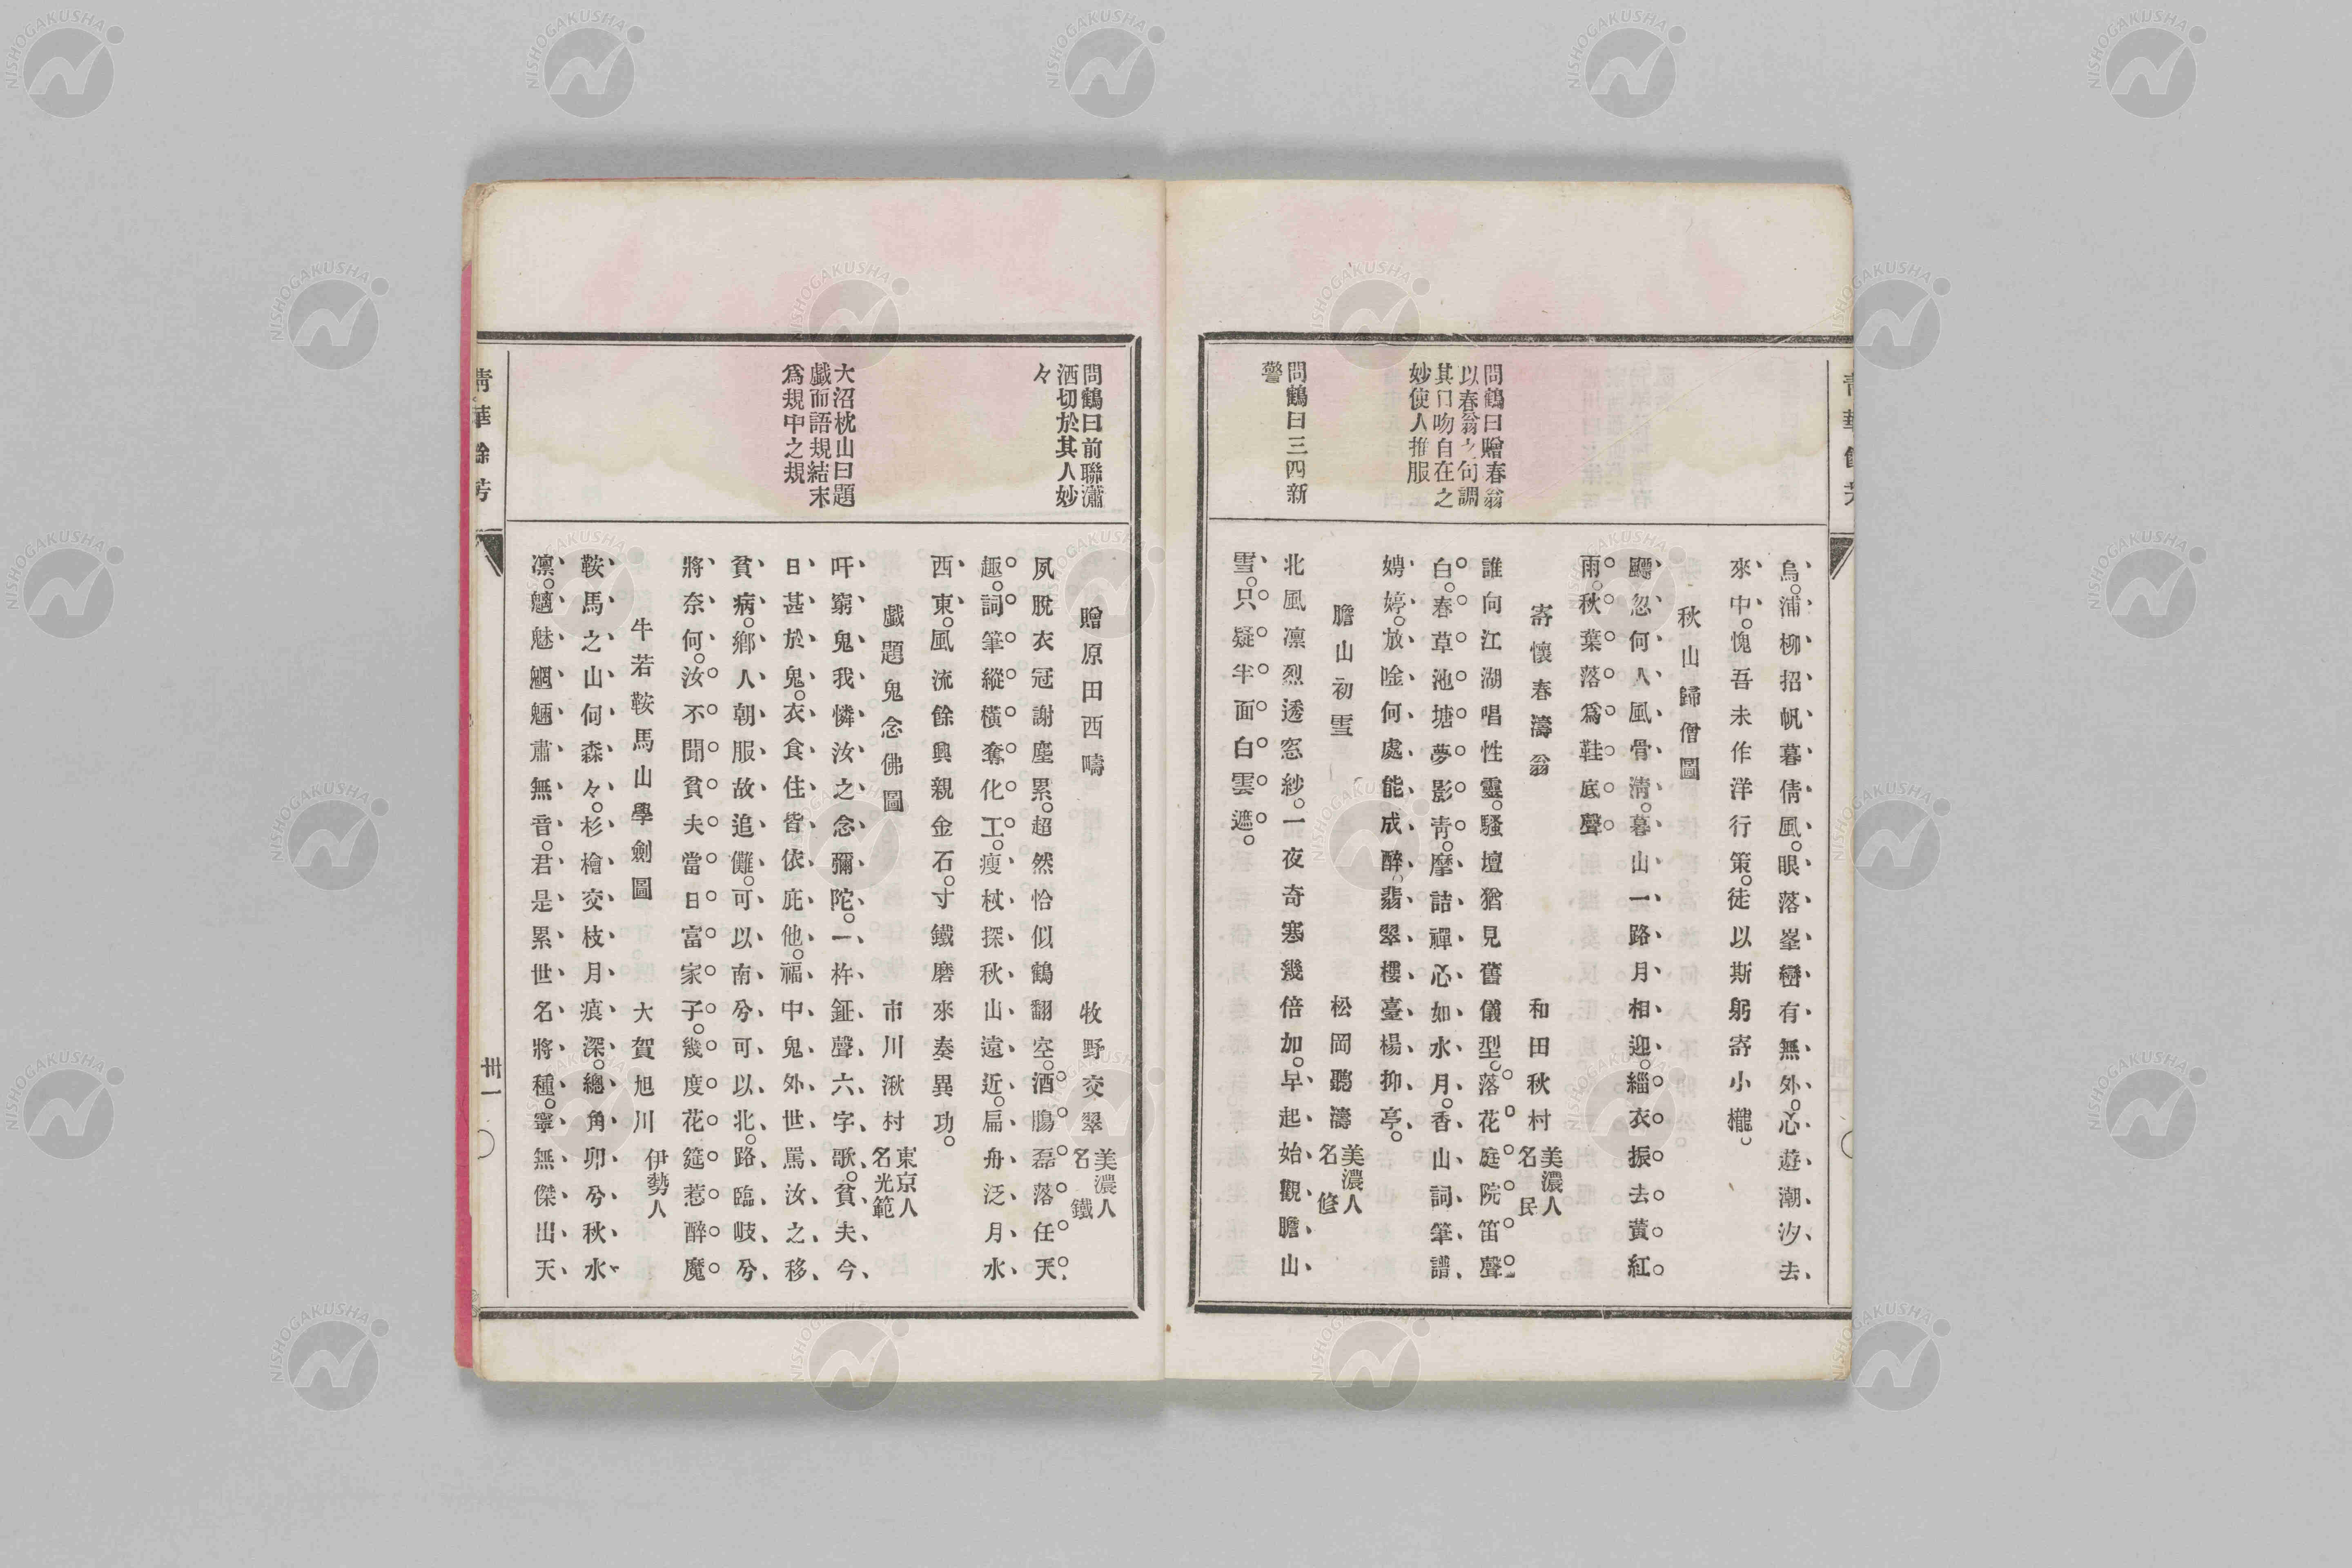 問鶴曰贈春翁
以春翁之句調
其口吻自在之
妙使人推服
問鶴曰三四新
警
烏。浦柳招帆暮倩風。眼落峯巒有無外。心遊潮汐去
來中。愧吾未作洋行策。徒以斯躬寄小櫳。
秋山歸僧圖
飄忽何人風骨淸。暮山一路月相迎。緇衣振去黃紅
雨。秋葉落爲鞋底聲
寄懷春濤翁 和田秋村 美濃人 名民
誰向江湖唱性靈。騷壇猶見舊儀型。落花庭院笛聲
白。春草池塘夢影靑。摩詰禪心如水月。香山詞筆譜
娉婷。放唫何處能成醉。翡翠樓臺楊抑亭。
膽山初雪 松岡聽濤 美濃人 名修
北風凛烈透窓紗。一夜奇塞幾倍加。早起始觀膽山
雪。只疑半面白雲遮。
問鶴曰前聯瀟
洒切於其人妙
々
大沼枕山曰題
戯而語規結末
爲規中之規
贈原田西疇 牧野交翠 美濃人 名鐵
夙脫衣冠謝塵累。超然恰似鶴翻空。酒膓磊落任天
趣。詞筆縱橫奪化工。瘦杖探秋山遠近。扁舟泛月水
西東。風流餘興親金石。寸鐵磨來奏異功。
戯題鬼念佛圖 市川湫村 東京人 名光範
吁窮鬼我憐汝之念彌陀。一杵鉦聲六字歌。貧夫今
日甚於鬼。衣食住皆依庇他。福中鬼外世罵汝之移
貧病。鄕人朝服故追儺。可以南兮可以北。路臨岐兮
將奈何。汝不聞貧夫當日富家子。幾度花筵惹醉魔
牛若鞍馬山學劍圖 大賀旭川 伊勢人
鞍馬之山何森々。杉檜交枝月痕深。總角丱兮秋水
凛。魑魅魍魎肅無音。君是累世名將種。寧無傑出天
靑華餘芳
卅一